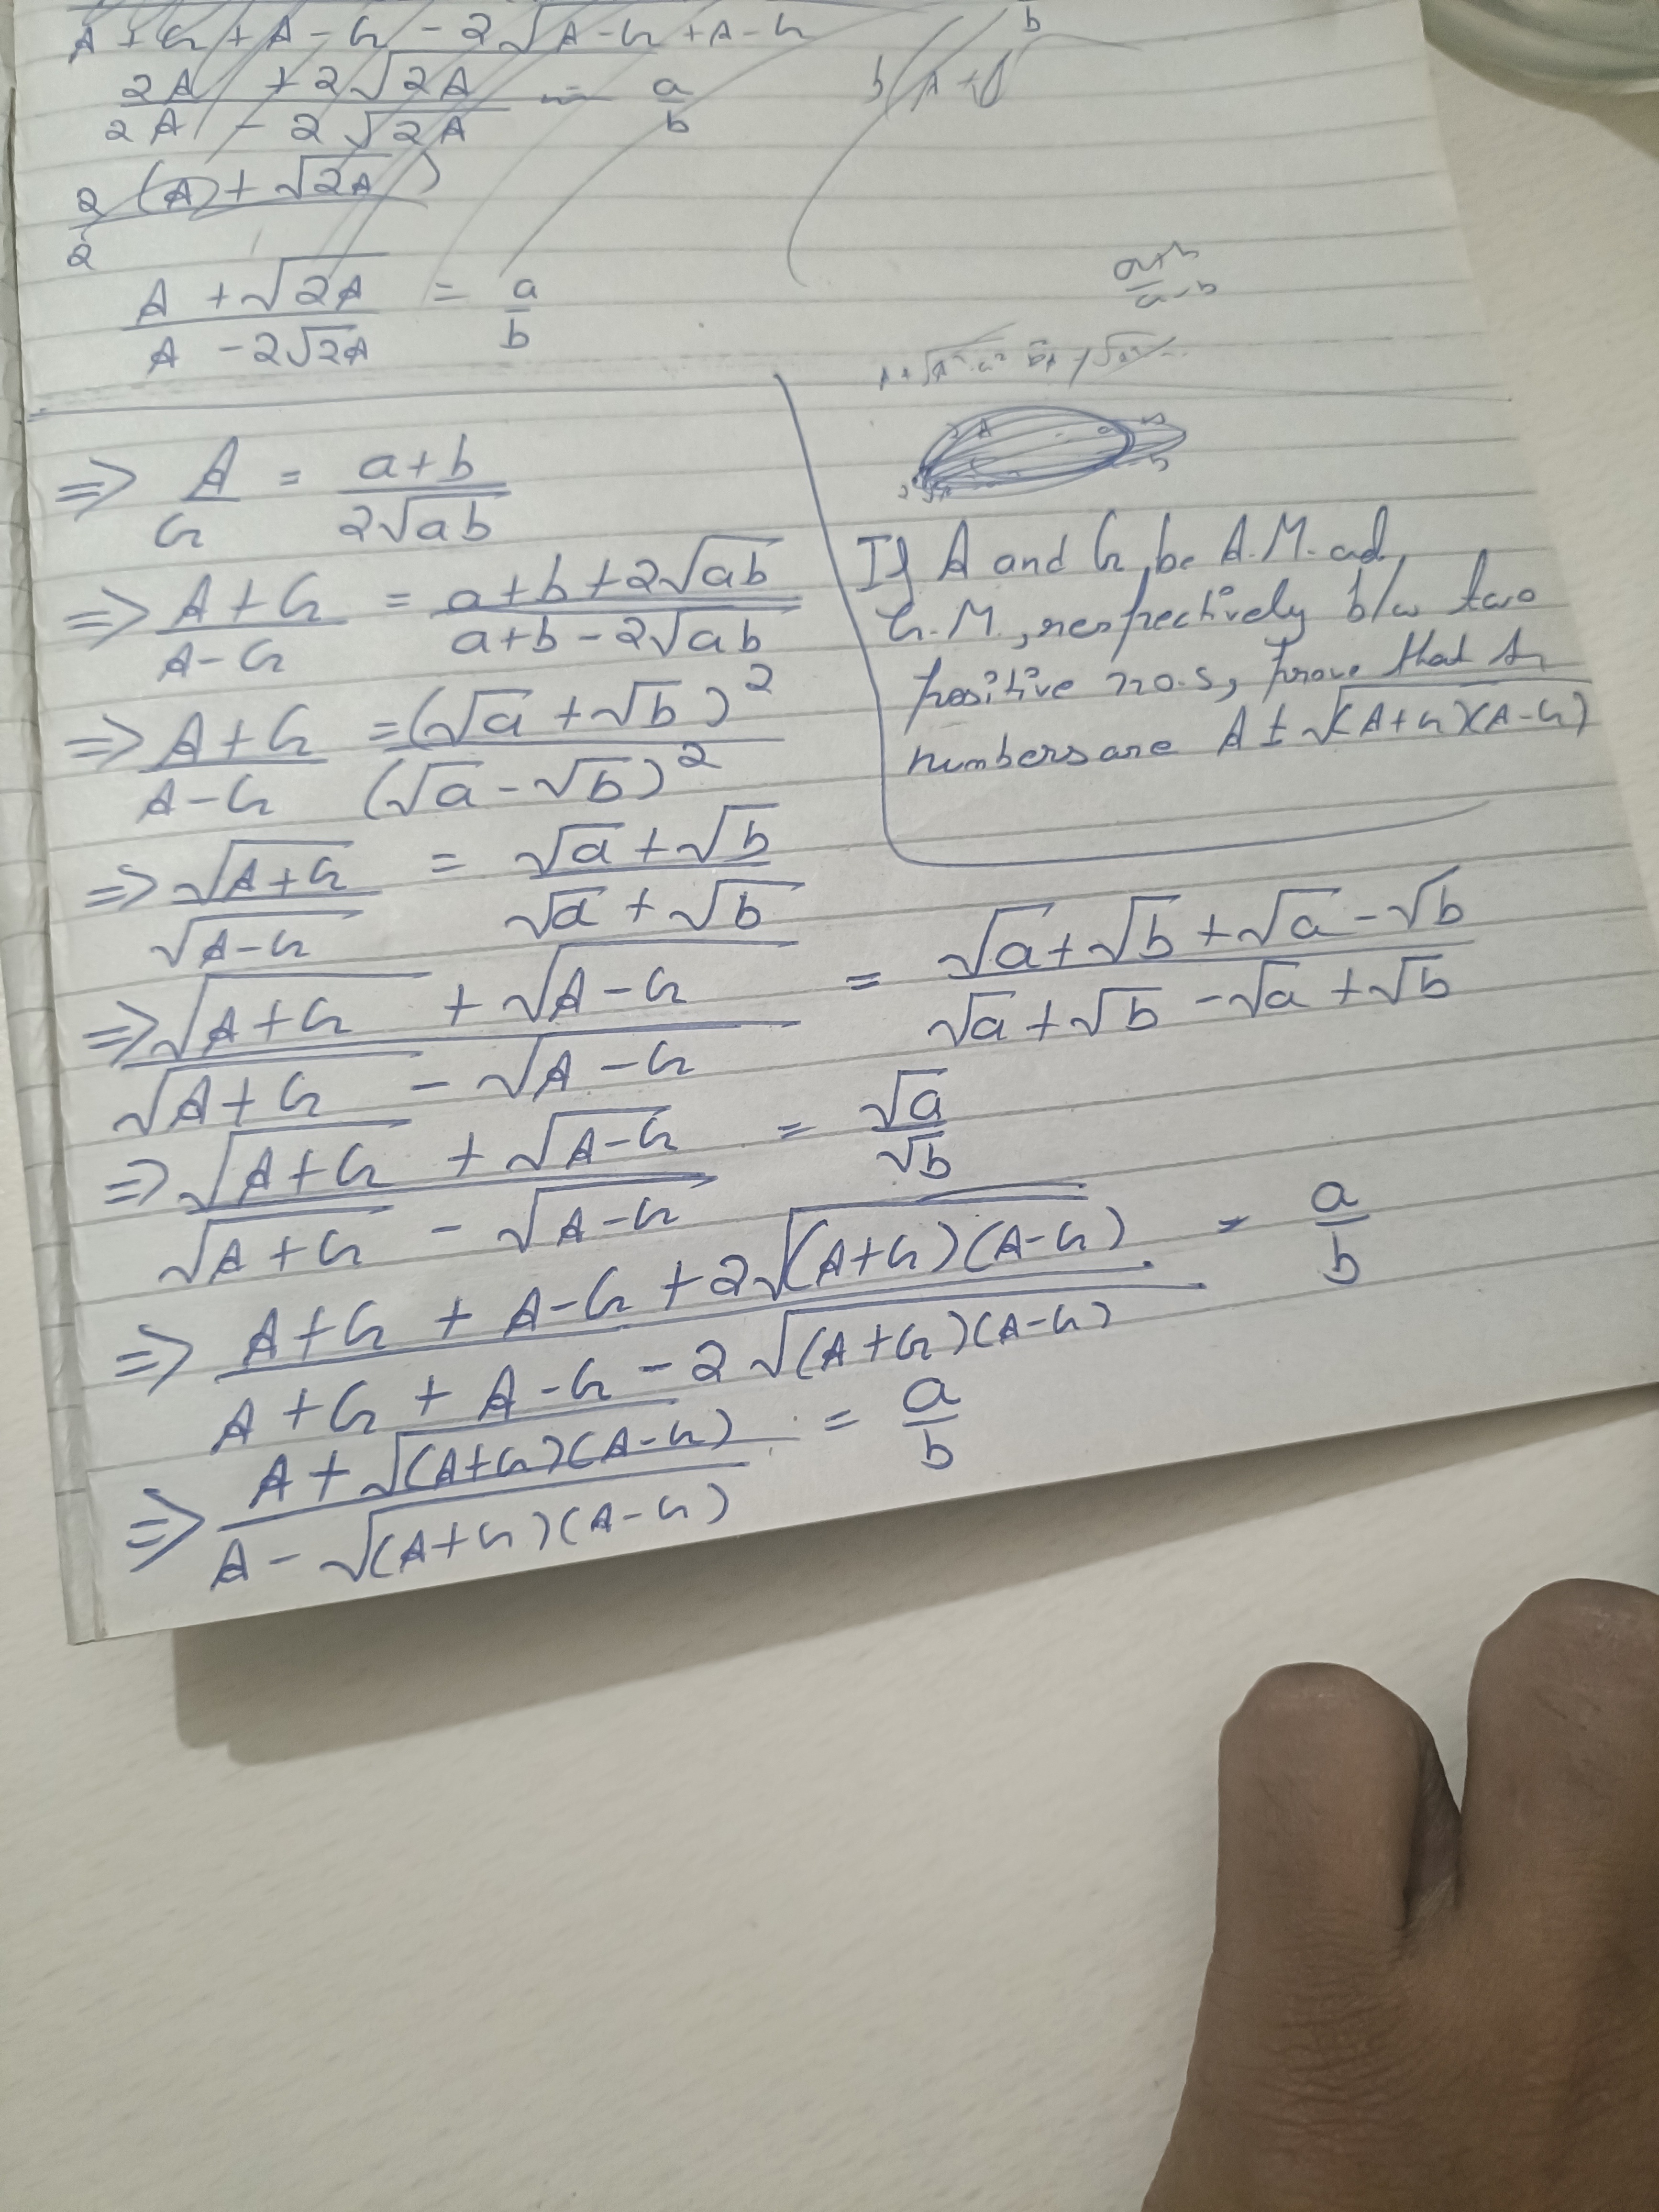 A + G + A - G - 2√A-G + A-G
b
2A + 2√2A / 2A - 2√2A = a/b
2 (A) + √2A) / 2
A + √2A / A - 2√2A = a/b
a+b / a-b
⇒ A/G = a+b / 2√ab
⇒ A+G / A-G = a+b+2√ab / a+b-2√ab
⇒ A+G / A-G = (√a + √b)² / (√a - √b)²
⇒ √A+G / √A-G = √a + √b / √a + √b
⇒ √A+G + √A-G / √A+G - √A-G = √a + √b + √a - √b / √a + √b - √a + √b
⇒ √A+G + √A-G / √A+G - √A-G = √a / √b
⇒ A+G + A-G + 2√(A+G)(A-G) / A+G + A-G - 2√(A+G)(A-G) = a/b
⇒ A + √(A+G)(A-G) / A - √(A+G)(A-G) = a/b
If A and G be A.M. ad
G.M., respectively b/w two
positive no.s, prove that
numbers are A ± √(A+G)(A-G)